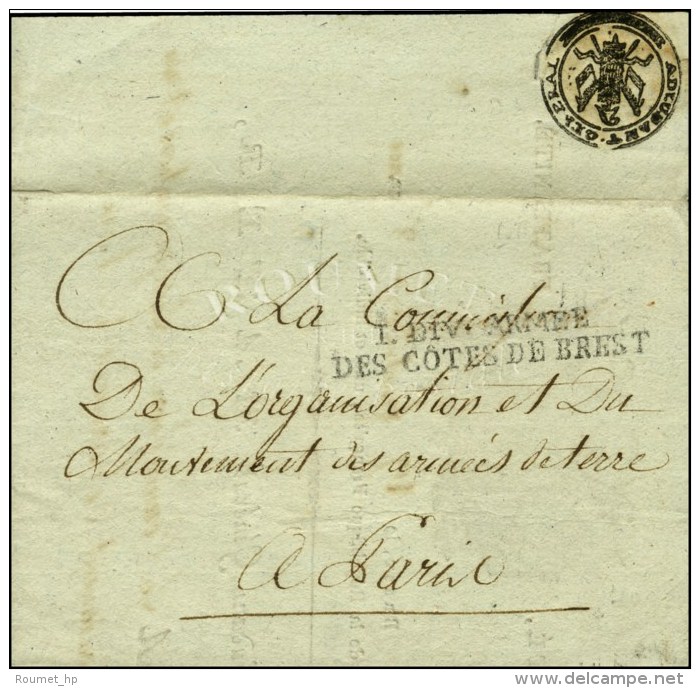 ADJUDANT. GÉNÉRAL
A La Commission
1. DIVon ARMÉE
DES CÔTES DE BREST
De L'organisation et Du
Mouvement des armées de terre
A Paris
Roumet_hp
delcampe.net